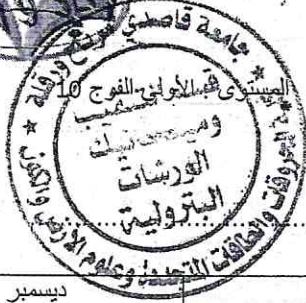 جامعة قاصدي مرباح ورقلة
المستوى الأولى الفوج 10
الورشات
البترولية
المحروقات والطاقات المتجددة وعلوم الأرض والكون
ديسمبر